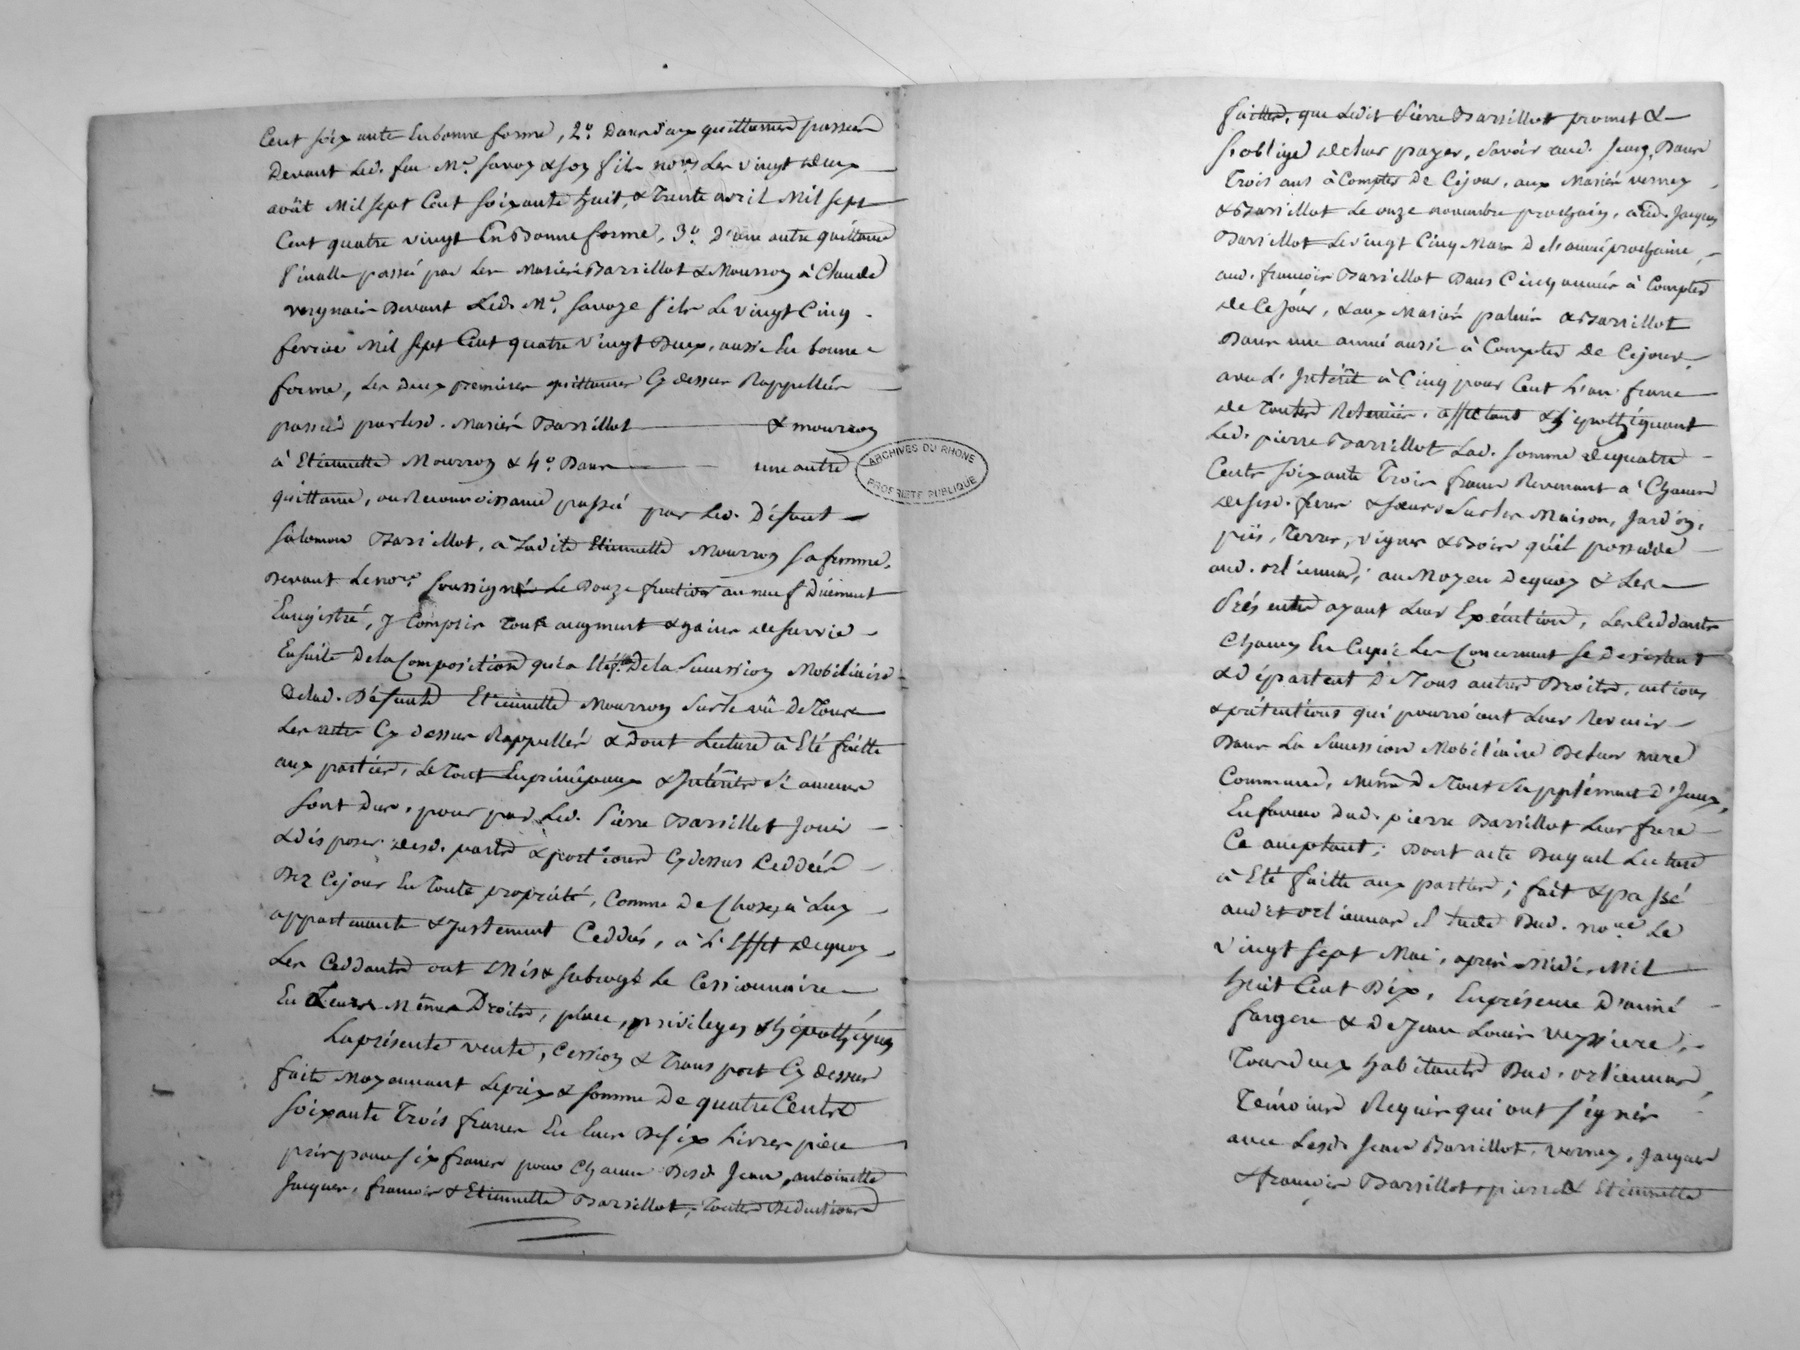 Cent soixante En bonne forme, 2.° Dans deux quittances passées
Devant Led. feu M.e Savoy & Son fils no.res Les vingt Deux
août Mil sept Cent soixante huit, & Trente avril Mil sept
Cent quatre vingt En Bonne forme, 3.° D'une autre quittance
finalle passé par Les Mariés Barrillot & Mourron à Claude
Devant Led. M.e Savoye fils Le vingt Cinq
fevrier Mil sept Cent quatre vingt Deux, aussi En bonne
forme, Les Deux premieres quittances Cy dessus Rappellées
passées par lesd. Mariés Barrillot & mourron
à Etiennette Mourron & 4.° Dans une autre
quittance, ou Reconnoissance passé par Led. Défunt
Salomon Barrillot, à Ladite Etiennette Mourron Sa femme,
Devant Le no.re Soussigné Le Douze fructidor an neuf Düement
Enregistré, y Compris Tout augment & gains de survie
Ensuite De la Composition qui a Eté f.te De la Succession Mobiliaire
De lad. Défunte Etiennette Mourron Sur le vû De Tous
Les actes Cy dessus Rappellés & dont Lecture à Eté faitte
aux parties, Le Tout En principaux & Intérêts Si aucuns
Sont Dus, pour par Led. Pierre Barrillot Jouir
& disposer desd. parts & portions Cy dessus Ceddées
Dez Cejour En Toute propriété, Comme De Chose à Luy
appartenante & Justement Ceddés, à L'Effet Dequoy
Les Ceddants ont Mis & subrogé Le Cessionnaire
En Leurs Mêmes Droits, place, privileges & hipothèques
La présente vente, Cession & Transport Cy dessus
faite Moyennant Le prix & somme De quatre Cents
Soixante Trois francs En Ecus De six Livres piece
pris pour six francs pour Chacun Desd. Jean, antoinette
Jacques, francois & Etiennette Barrillot, Toutes Déductions
faittes, que Ledit Pierre Barrillot promet &
S'oblige de leur payer, Savoir aud. Jean, Dans
Trois ans à Compter De Cejour, aux Mariés verney
& Barrillot Le onze novembre prochain, aud. Jacques
Barrillot Le vingt Cinq Mars De l'année prochaine,
aud. francois Barrillot Dans Cinq années à Compter
de Ce Jour, & aux Mariés & Barrillot
Dans une année aussi à Compter De Cejour,
avec L'Intérêt à Cinq pour Cent L'an franc
de Toutes Retenües, affectant & hipothéquant
Led. pierre Barrillot Lad. Somme de quatre
Cents soixante Trois francs Revenant à Chacun
de sesd. freres & sœurs Sur les Maison, Jardin,
prés, Terres, vignes & Bois qu'il possede
aud. orliennas; au Moyen Dequoy & Les
Présentes ayant Leur Exécution, Les Ceddants
Chacun En Ce qui Les Concernent Se Désistent
& départent De Tous autres Droits, actions
& prétentions qui pourroient Leur Revenir
Dans La Succession Mobiliaire De Leur mere
Commune, Même De Tout Supplément D'Iceux,
En faveur Dud. pierre Barrillot Leur frere
Ce acceptant; Dont acte Duquel Lecture
à Eté faitte aux parties; fait & passé
aud.t orliennas Etude Dud. no.re Le
vingt sept Mai, après Midi, Mil
huit Cent Dix, En présence D'aimé
fargere & De Jean Louis veyssiere,
Tous deux habitants Dud. orliennas
Témoins Requis qui ont Signés
avec Lesd. Jean Barrillot, verney, Jacques
& francois Barrillot, pierre & Etiennette
ARCHIVES DU RHONE
PROPRIETE PUBLIQUE